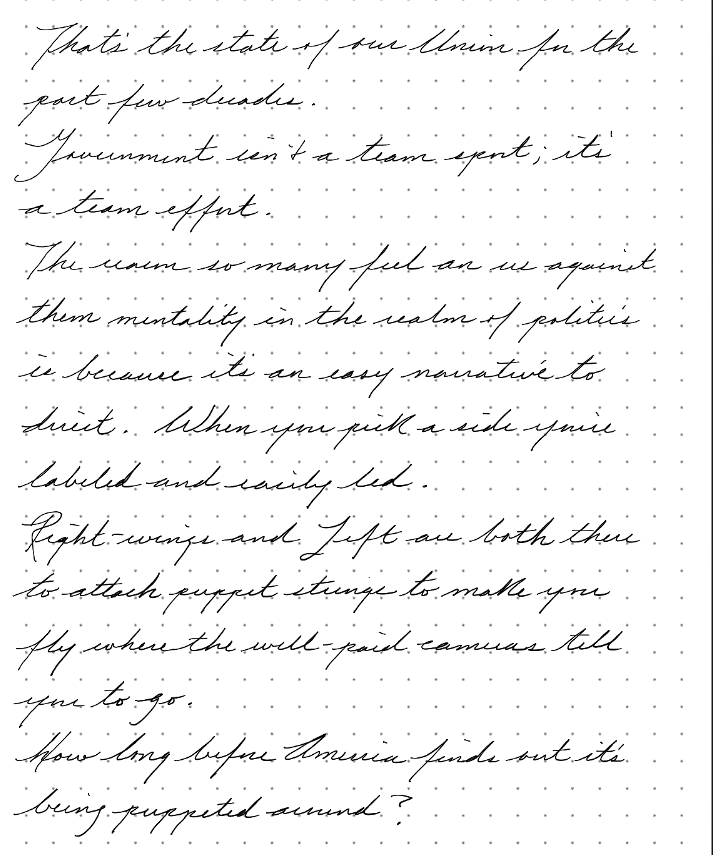 That's the state of our Union for the
past few decades.
Government isn't a team sport; it's
a team effort.
The reason so many feel an us against
them mentality in the realm of politics
is because it's an easy narrative to
direct. When you pick a side you're
labeled and easily led.
Right-wings and Left are both there
to attach puppet strings to make you
fly where the well-paid cameras tell
you to go.
How long before America finds out it's
being puppeted around?